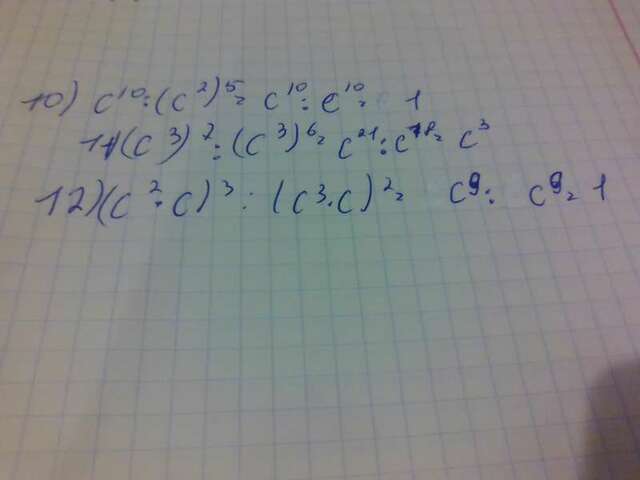 10) c¹⁰:(c²)⁵= c¹⁰:c¹⁰= 1
11)(c³)⁷:(c³)⁶= c²¹:c¹⁸= c³
12)(c²·c)³:(c³·c)²= c⁹: c⁹= 1